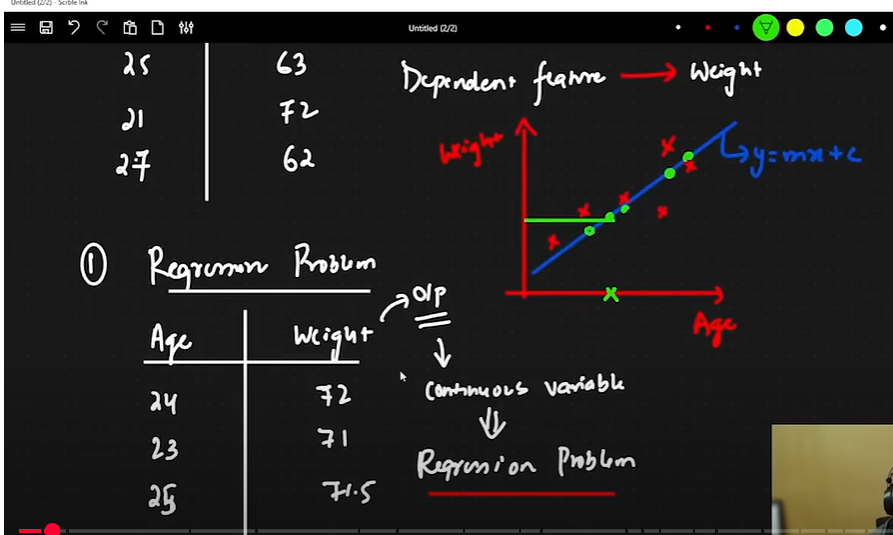 Untitled (2/2) - Scrble Ink
Untitled (2/2)
25 63
21 72
27 62
Dependent feature → Weight
Weight
y=mx+c
Age
① Regression Problem
O/P
Age Weight
24 72
23 71
25 71.5
Continuous variable
Regression Problem